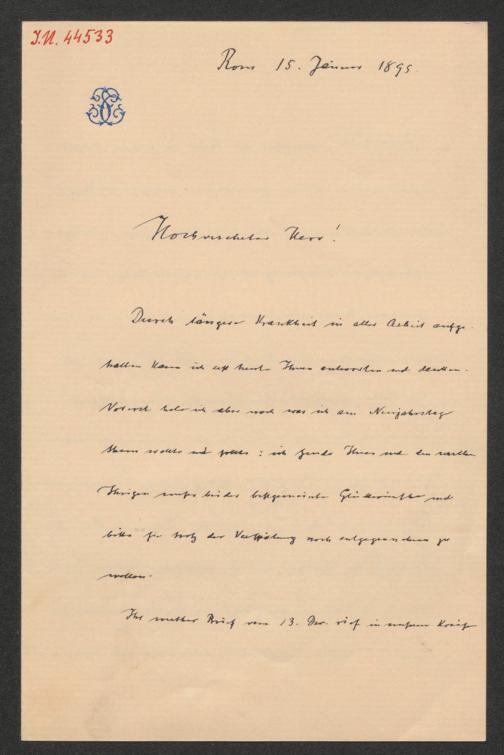 J.N. 44533
Rom 15. Jänner 1895.
Hochverehrter Herr!
Durch längere Krankheit in aller Arbeit aufge-
halten kann ich erst heute Ihnen antworten und danken.
Vorerst hole ich aber nach was ich am Neujahrstag
thun wollte und sollte: ich sende Ihnen und den werthen
Ihrigen unser beider bestgemeinte Glückwünsche und
bitte sie trotz der Verspätung noch entgegennehmen zu
wollen.
Ihr werther Brief vom 13. Dez. rief in unserm Kreise